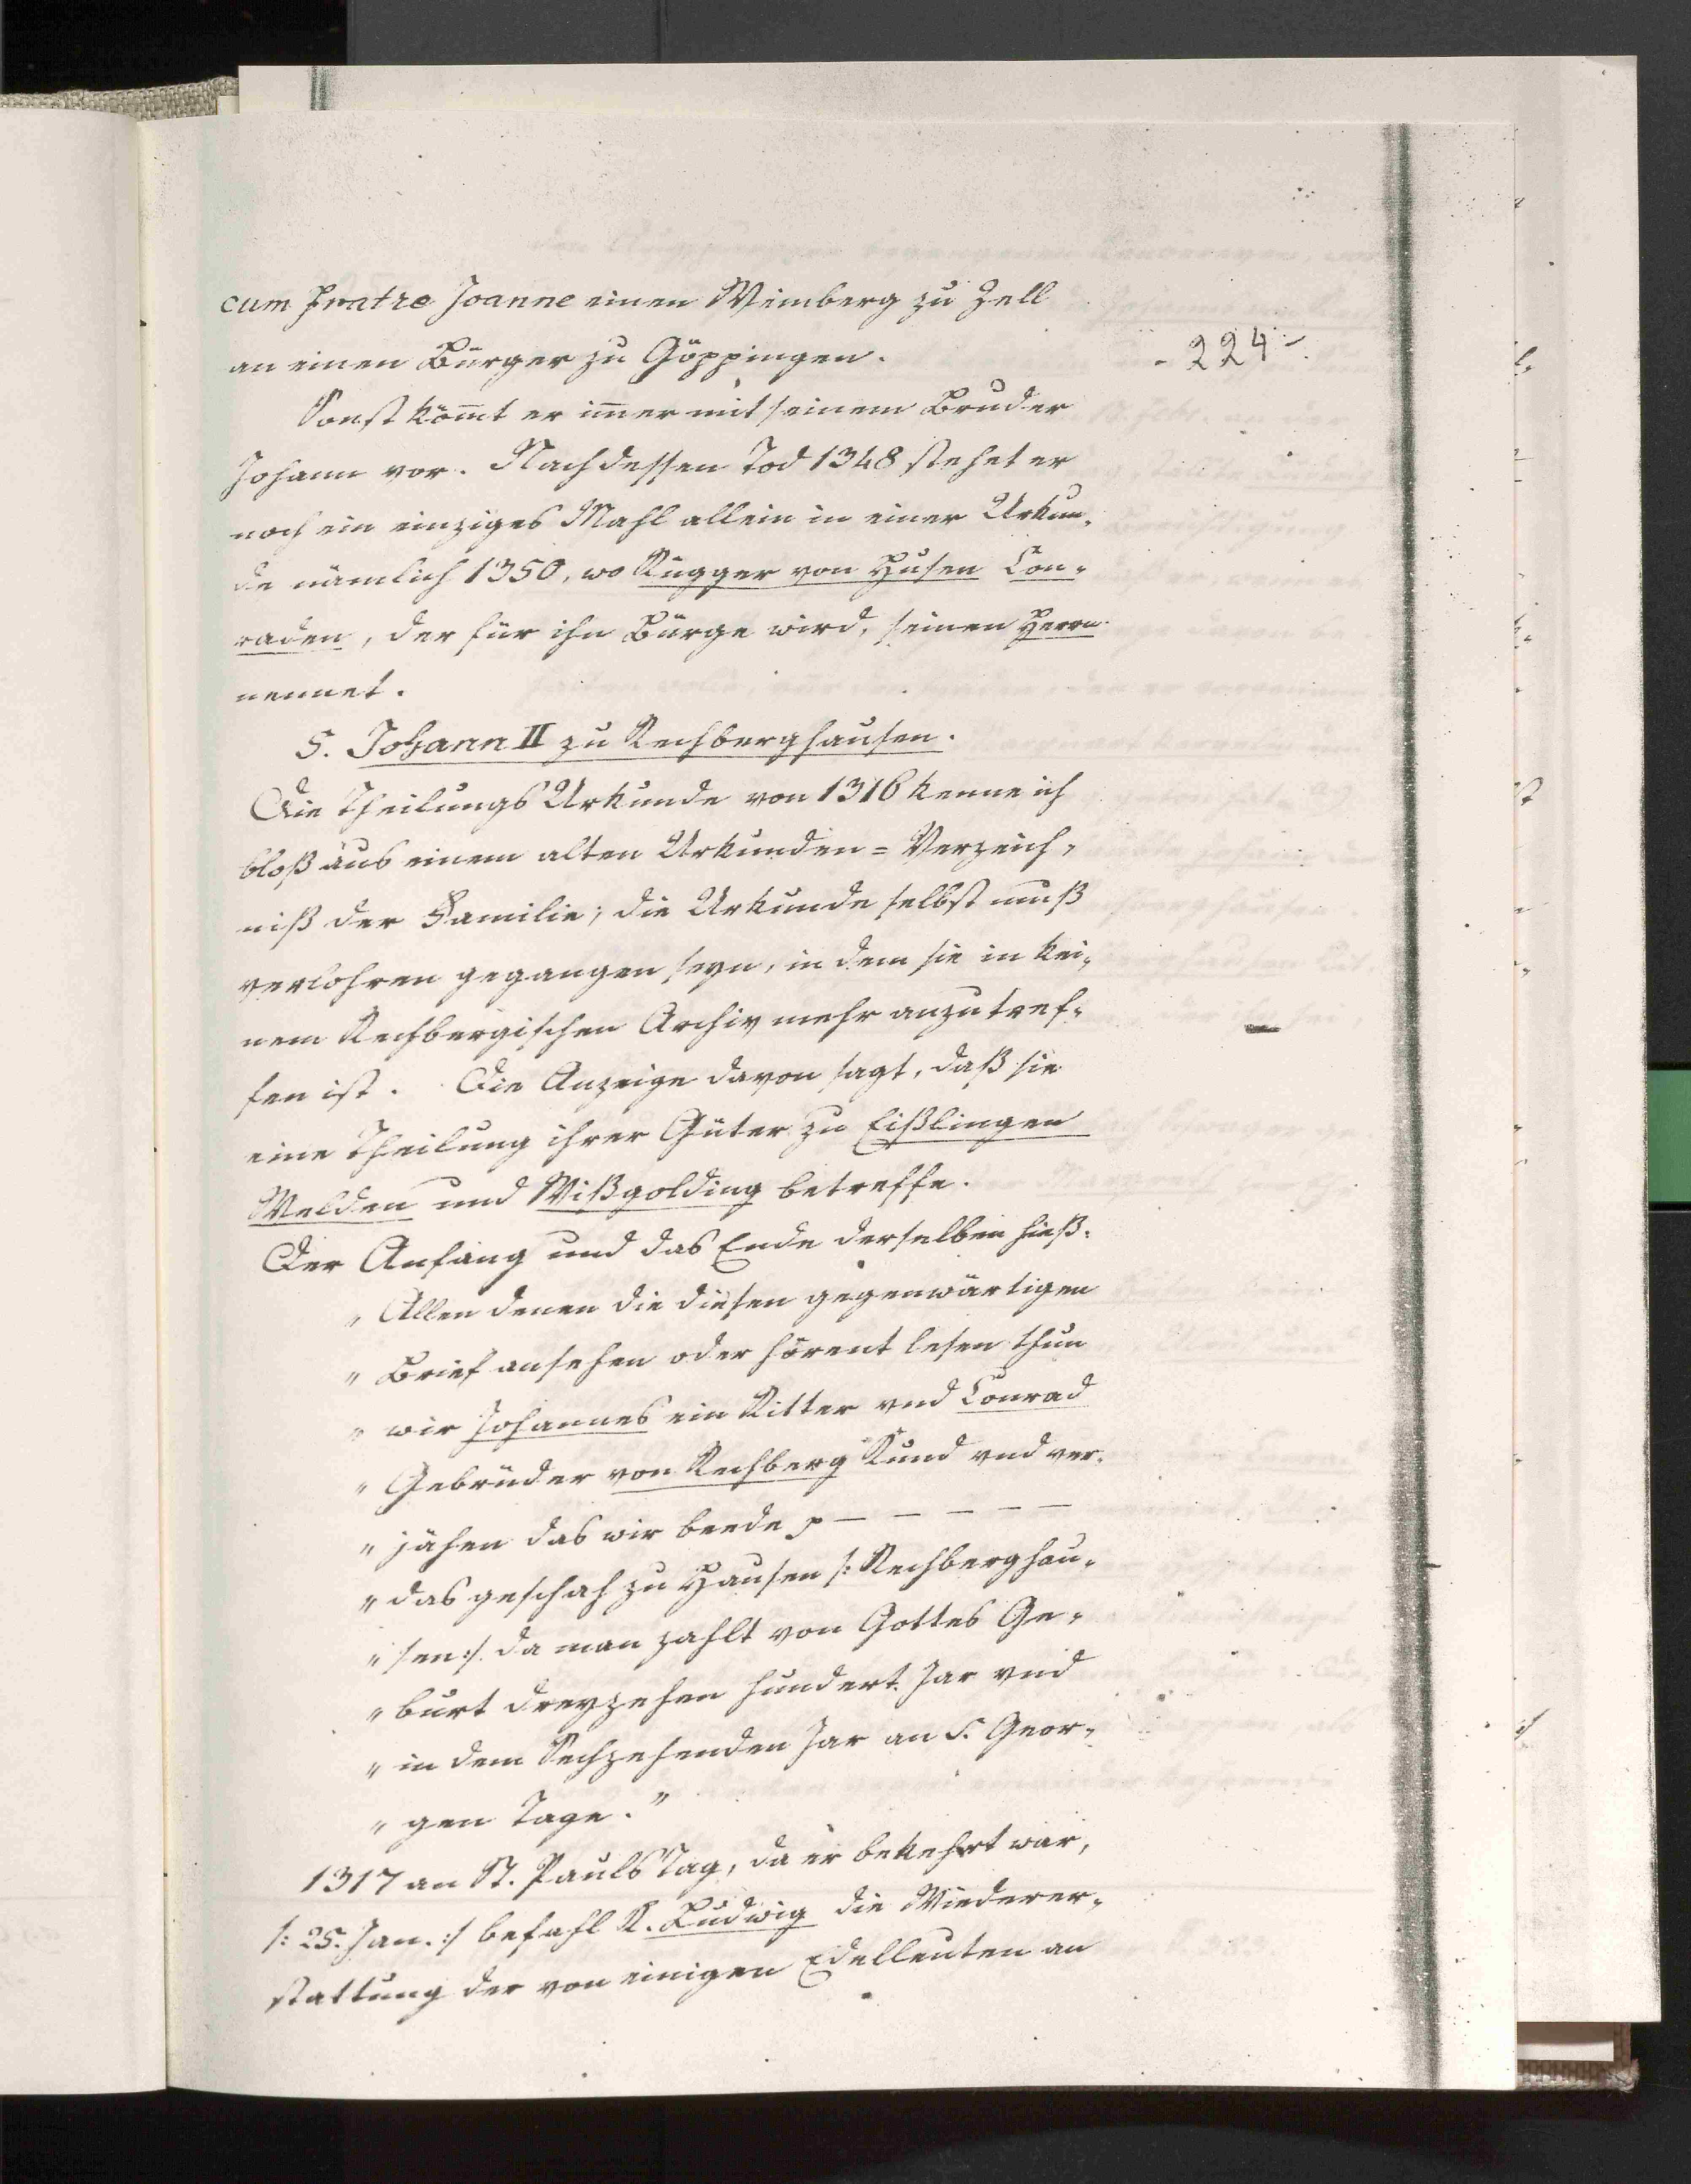 cum fratre Joanne einen Weinberg zu Zell
an einen Bürger zu Göppingen.
- 224 -
Sonst kömt er imer mit seinem Bruder
Johann vor. Nach dessen Tod 1348 stehet er
noch ein einziges Mahl allein in einer Urkun-
de nämlich 1350, wo Rugger von Husen Con-
raden, der für ihn Bürge wird, seinen Herrn
nennet.
5. Johann II zu Rechberghausen.
Die Theilungs Urkunde von 1316 kenne ich
bloß aus einem alten Urkunden = Verzeich-
niß der Familie; die Urkunde selbst muß
verlohren gegangen seyn, in dem sie in kei-
nem Rechbergischen Archiv mehr anzutref-
fen ist. Die Anzeige davon sagt, daß sie
eine Theilung ihrer Güter zu Eißlingen
Welden und Wißgolding betreffe.
Der Anfang und das Ende derselben hieß:
„ Allen denen die diesen gegenwärtigen
„ Brief ansehen oder hörent lesen thun
„ wir Johannes ein Ritter vnd Conrad
„ Gebrüder von Rechberg Kund vnd ver-
„ jähen das wir beede p — — — — —
„ das geschah zu Hausen /: Rechberghau-
„ sen :/ da man zahlt von Gottes Ge-
„ burt dreyzehen hundert Jar vnd
„ in dem Sechzehenden Jar an S. Geor-
„ gen Tage."
1317 an St. Pauls Tag, da er bekehrt war,
/: 25. Jan. :/ befahl K. Ludwig die Wiederer-
stattung der von einigen Edelleuten an